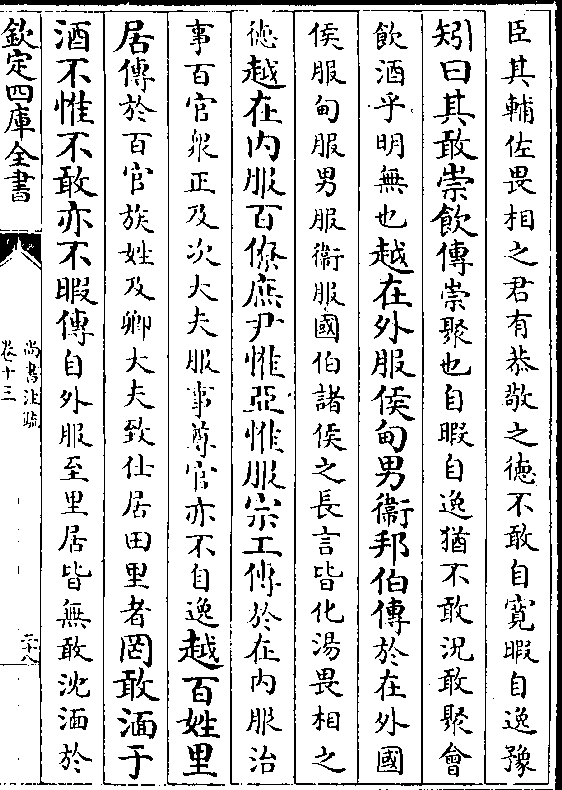 臣其輔佐畏相之君有恭敬之德不敢自寛暇自逸豫
矧曰其敢崇飲傳崇聚也自暇自逸猶不敢況敢聚會
飲酒乎明無也越在外服侯甸男衞邦伯傳於在外國
侯服甸服男服衞服國伯諸侯之長言皆化湯畏相之
德越在内服百僚庶尹惟亞惟服宗工傳於在内服治
事百官衆正及次大夫服事尊官亦不自逸越百姓里
居傳於百官族姓及卿大夫致仕居田里者罔敢湎于
酒不惟不敢亦不暇傳自外服至里居皆無敢沈湎於
欽定四庫全書
尚書注疏
卷十三
二十八